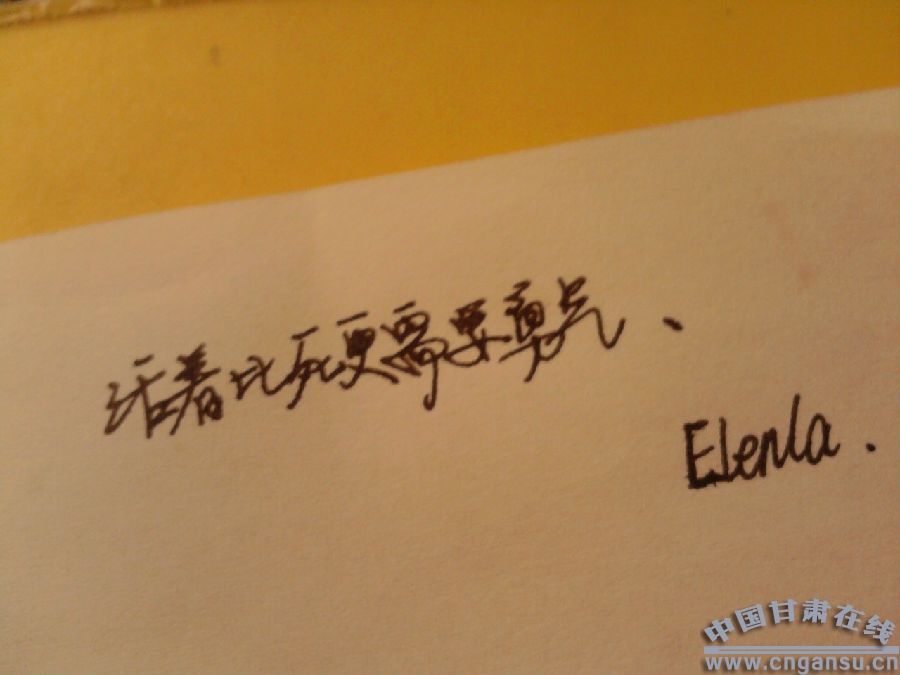 活着比死更需要勇气、
Elenla.
中国甘肃在线
www.cngansu.cn